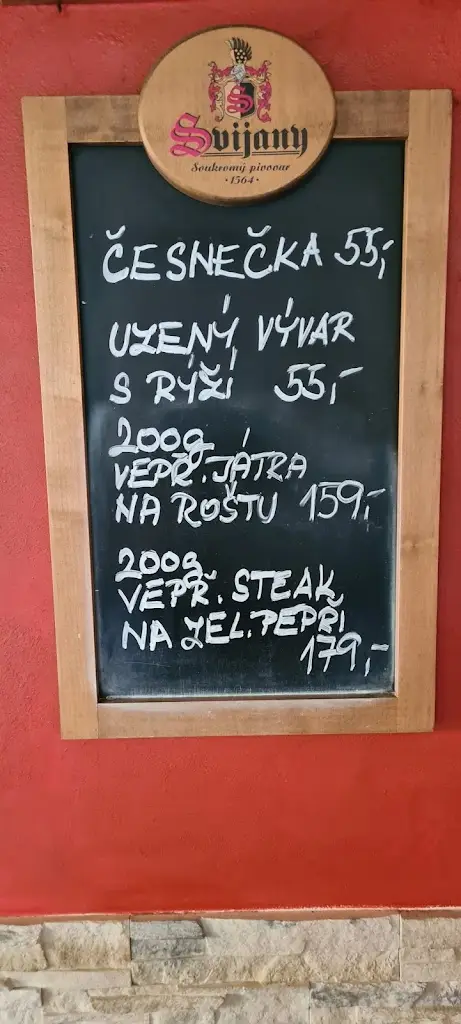 Svijany
Soukromý pivovar
·1564·
ČESNEČKA 55,-
UZENÝ VÝVAR
S RÝŽÍ 55,-
200g
VEPŘ. JÁTRA
NA ROŠTU 159,-
200g
VEPŘ. STEAK
NA ZEL. PEPŘI
179,-